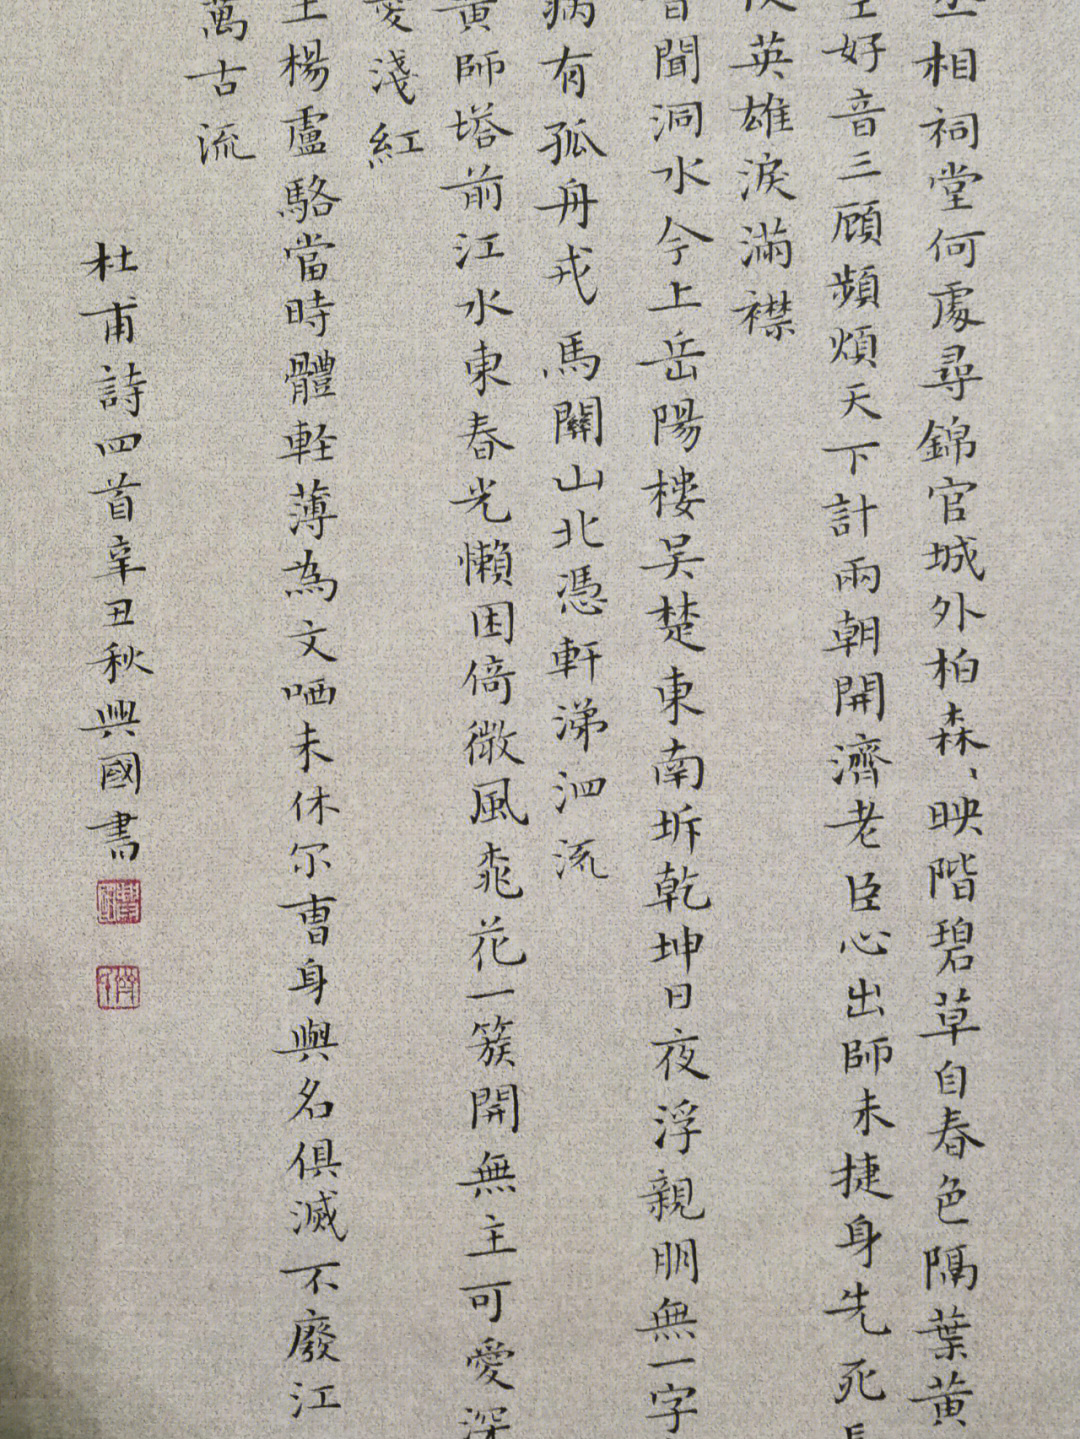 丞相祠堂何處尋錦官城外柏森、映階碧草自春色隔葉黃
空好音三顧頻煩天下計兩朝開濟老臣心出師未捷身先死長
使英雄淚滿襟
昔聞洞水今上岳陽樓吳楚東南坼乾坤日夜浮親朋無一字
病有孤舟戎馬關山北憑軒涕泗流
黃師塔前江水東春光懶困倚微風桃花一簇開無主可愛深
愛淺紅
王楊盧駱當時體輕薄為文哂未休尔曹身與名俱滅不廢江
萬古流
杜甫詩四首辛丑秋興國書